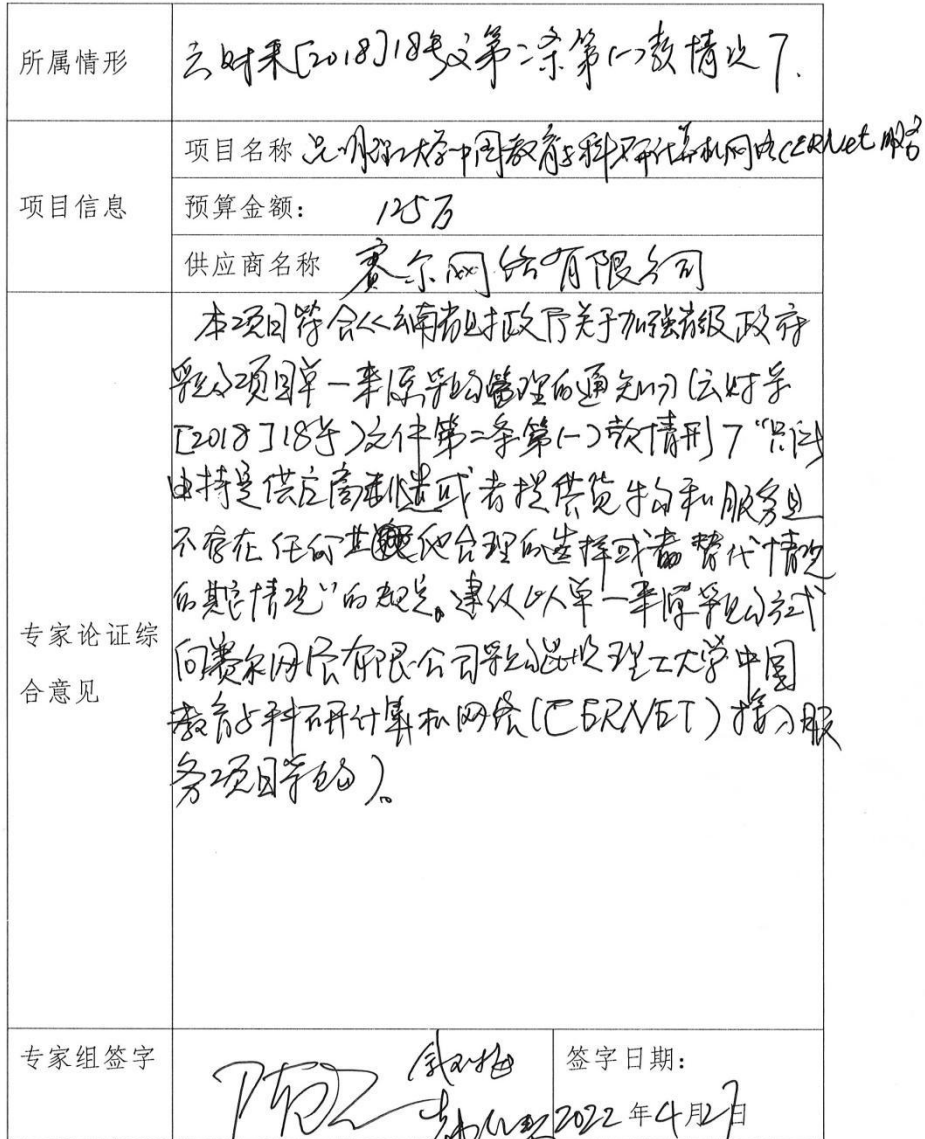 所属情形 云财采[2018]18号文第二条第(一)款情况7.
项目名称 昆明理工大学中国教育与科研计算机网络CERNet服务
项目信息
预算金额: 125万
供应商名称 赛尔网络有限公司
本项目符合《云南省财政厅关于加强省级政府
采购项目单一来源采购管理的通知》(云财采
[2018]18号)文件第二条第(一)款情形7“只能
由特定供应商制造或者提供货物和服务且
不存在任何其他合理的选择或者替代情况
的其它情况”的规定。建议以单一来源采购方式
专家论证综合意见
向赛尔网络有限公司采购昆明理工大学中国
教育与科研计算机网络(CERNET)接入服
务项目采购)。
专家组签字
签字日期:
2022年4月27日